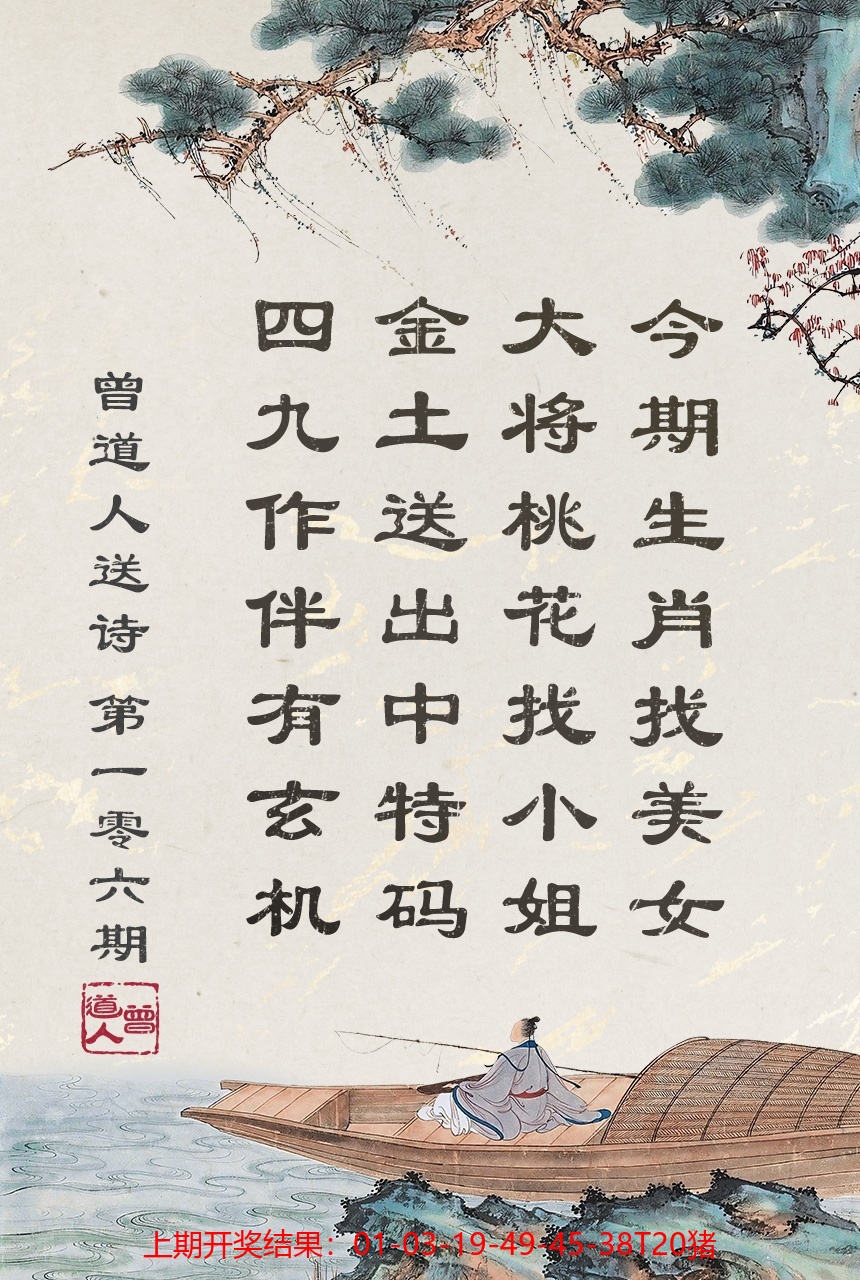 今期生肖找美女
大将桃花找小姐
金土送出中特码
四九作伴有玄机
曾道人送诗 第一零六期
曾道人
上期开奖结果：01-03-19-49-45-38T20猪